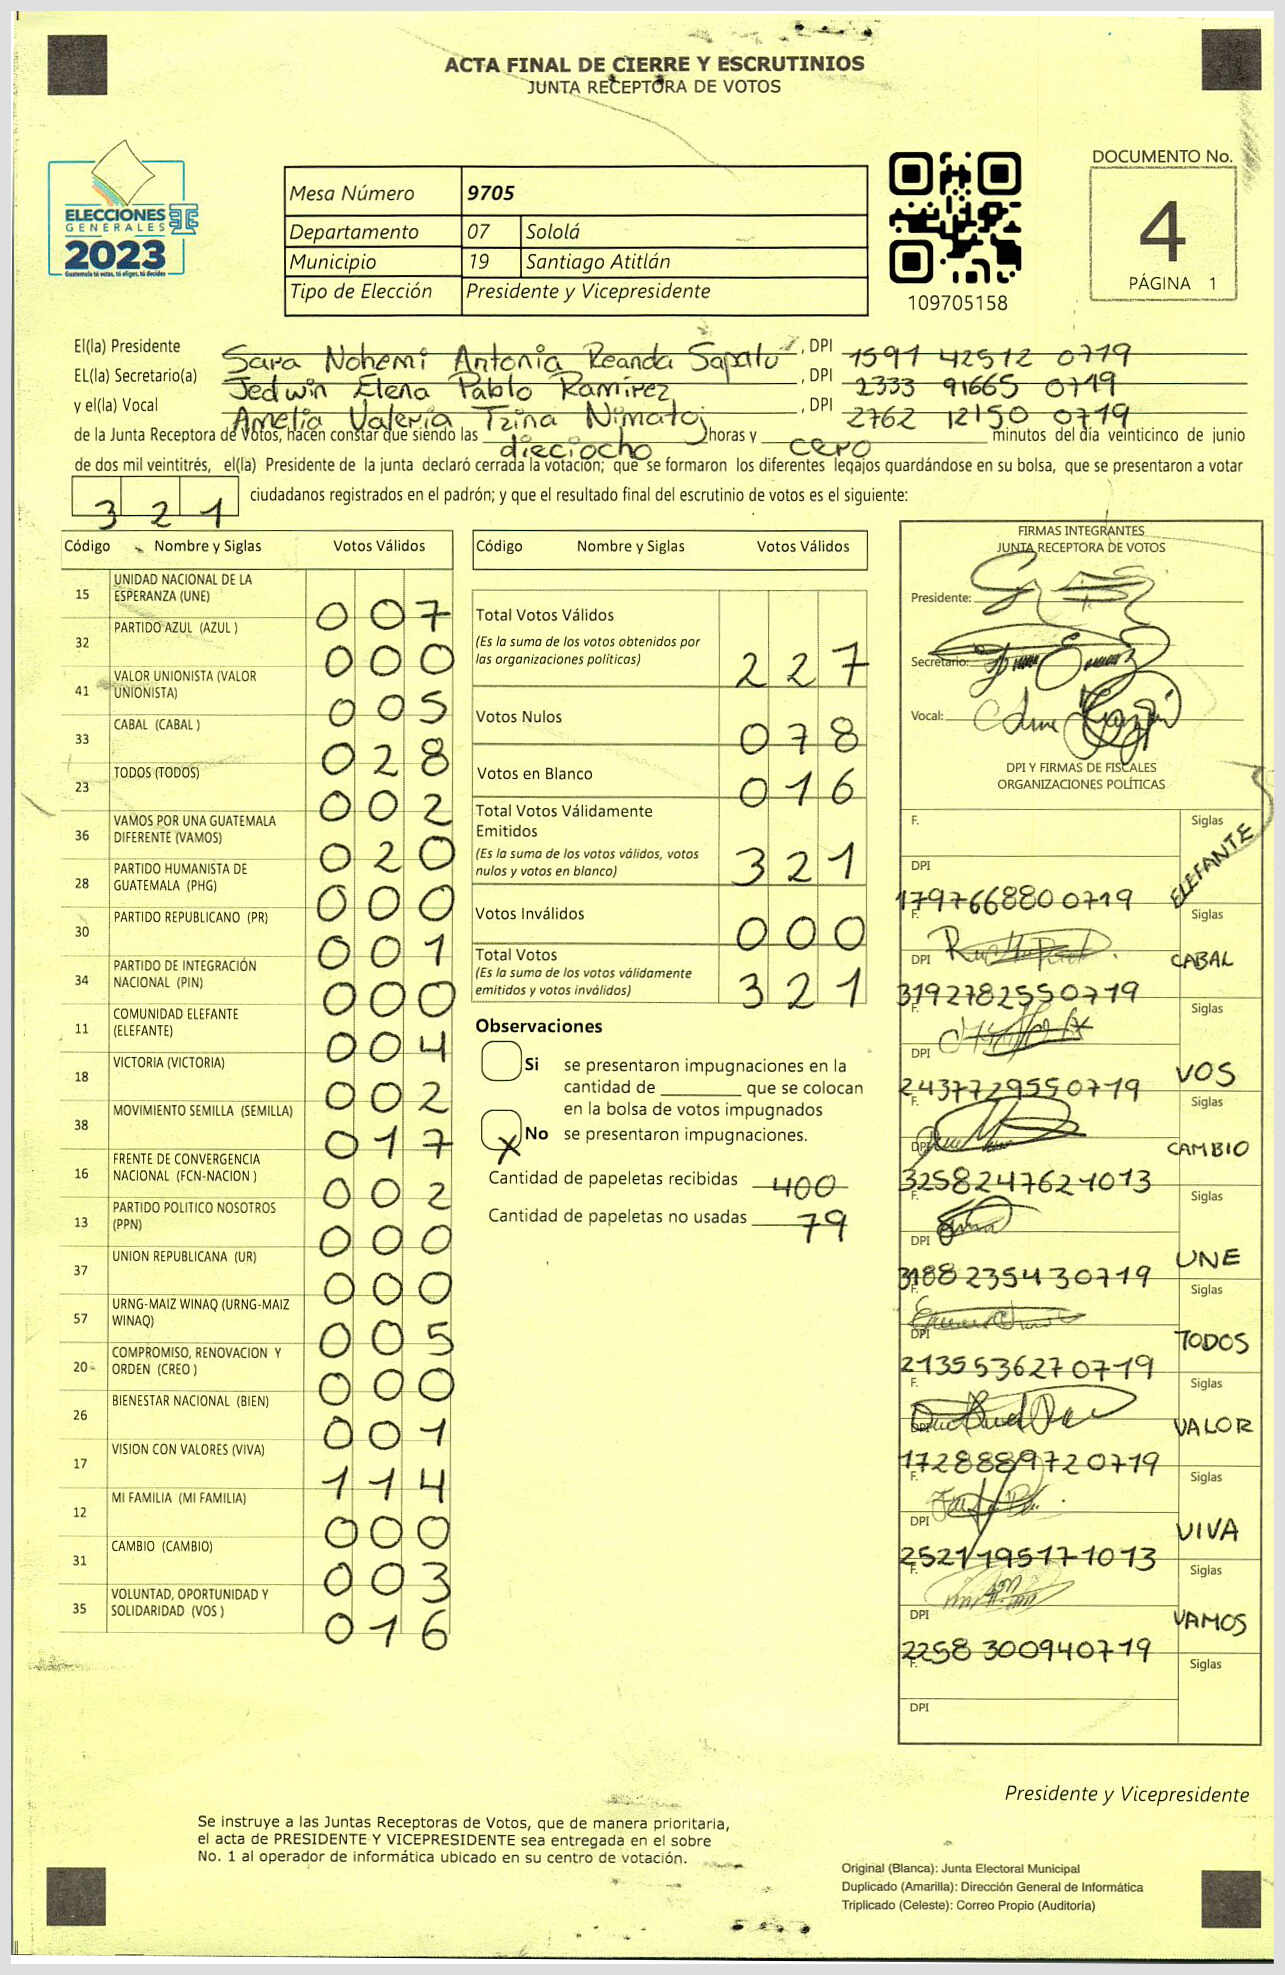 ACTA FINAL DE CIERRE Y ESCRUTINIOS
JUNTA RECEPTORA DE VOTOS
ELECCIONES
GENERALES
2023
Guatemala tú votas, tú eliges, tú decides
Mesa Número 9705
Departamento 07 Sololá
Municipio 19 Santiago Atitlán
Tipo de Elección Presidente y Vicepresidente
109705158
DOCUMENTO No.
4
PÁGINA 1
El(la) Presidente Sara Nohemi Antonia Reanda Sapalú, DPI 1591 42512 0719
EL(la) Secretario(a) Jedwin Elena Pablo Ramírez, DPI 2333 91665 0719
y el(la) Vocal Amelia Valeria Tzina Nimatoj, DPI 2762 12150 0719
de la Junta Receptora de Votos, hacen constar que siendo las dieciocho horas y cero minutos del día veinticinco de junio
de dos mil veintitrés, el(la) Presidente de la junta declaró cerrada la votación; que se formaron los diferentes legajos guardándose en su bolsa, que se presentaron a votar
321 ciudadanos registrados en el padrón; y que el resultado final del escrutinio de votos es el siguiente:
Código Nombre y Siglas Votos Válidos
15 UNIDAD NACIONAL DE LA ESPERANZA (UNE) 007
32 PARTIDO AZUL (AZUL ) 000
41 VALOR UNIONISTA (VALOR UNIONISTA) 005
33 CABAL (CABAL ) 028
23 TODOS (TODOS) 002
36 VAMOS POR UNA GUATEMALA DIFERENTE (VAMOS) 020
28 PARTIDO HUMANISTA DE GUATEMALA (PHG) 000
30 PARTIDO REPUBLICANO (PR) 001
34 PARTIDO DE INTEGRACIÓN NACIONAL (PIN) 000
11 COMUNIDAD ELEFANTE (ELEFANTE) 004
18 VICTORIA (VICTORIA) 002
38 MOVIMIENTO SEMILLA (SEMILLA) 017
16 FRENTE DE CONVERGENCIA NACIONAL (FCN-NACION ) 002
13 PARTIDO POLITICO NOSOTROS (PPN) 000
37 UNION REPUBLICANA (UR) 000
57 URNG-MAIZ WINAQ (URNG-MAIZ WINAQ) 005
20 COMPROMISO, RENOVACION Y ORDEN (CREO ) 000
26 BIENESTAR NACIONAL (BIEN) 001
17 VISION CON VALORES (VIVA) 114
12 MI FAMILIA (MI FAMILIA) 000
31 CAMBIO (CAMBIO) 003
35 VOLUNTAD, OPORTUNIDAD Y SOLIDARIDAD (VOS ) 016
Código Nombre y Siglas Votos Válidos
Total Votos Válidos
(Es la suma de los votos obtenidos por
las organizaciones políticas) 227
Votos Nulos 078
Votos en Blanco 016
Total Votos Válidamente
Emitidos
(Es la suma de los votos válidos, votos
nulos y votos en blanco) 321
Votos Inválidos 000
Total Votos
(Es la suma de los votos válidamente
emitidos y votos inválidos) 321
Observaciones
Si se presentaron impugnaciones en la
cantidad de ________ que se colocan
en la bolsa de votos impugnados
X No se presentaron impugnaciones.
Cantidad de papeletas recibidas 400
Cantidad de papeletas no usadas 79
FIRMAS INTEGRANTES
JUNTA RECEPTORA DE VOTOS
Presidente:
Secretario:
Vocal:
DPI Y FIRMAS DE FISCALES
ORGANIZACIONES POLÍTICAS
F. Siglas
DPI ELEFANTE
179766880 0719
F. Siglas
DPI CABAL
3192782550719
F. Siglas
DPI VOS
2437729550719
F. Siglas
DPI CAMBIO
3258247621013
F. Siglas
DPI UNE
3188235430719
F. Siglas
DPI TODOS
2135536270719
F. Siglas
DPI VALOR
1728889720719
F. Siglas
DPI VIVA
2521195171013
F. Siglas
DPI VAMOS
2258300940719
F. Siglas
DPI
Presidente y Vicepresidente
Se instruye a las Juntas Receptoras de Votos, que de manera prioritaria,
el acta de PRESIDENTE Y VICEPRESIDENTE sea entregada en el sobre
No. 1 al operador de informática ubicado en su centro de votación.
Original (Blanca): Junta Electoral Municipal
Duplicado (Amarilla): Dirección General de Informática
Triplicado (Celeste): Correo Propio (Auditoría)